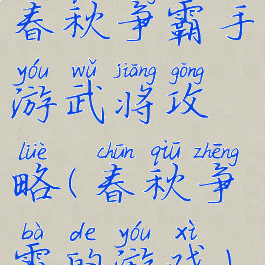 春秋争霸手
yóu wǔ jiāng gōng
游武将攻
lüè chūn qiū zhēng
略(春秋争
bà de yóu xì
霸的游戏)